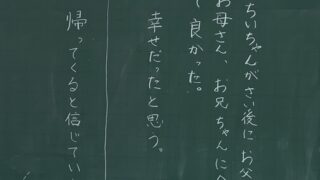 ちいちゃんがさい後にお父
お母さん、お兄ちゃんに会
て良かった。
幸せだったと思う。
帰ってくると信じてい